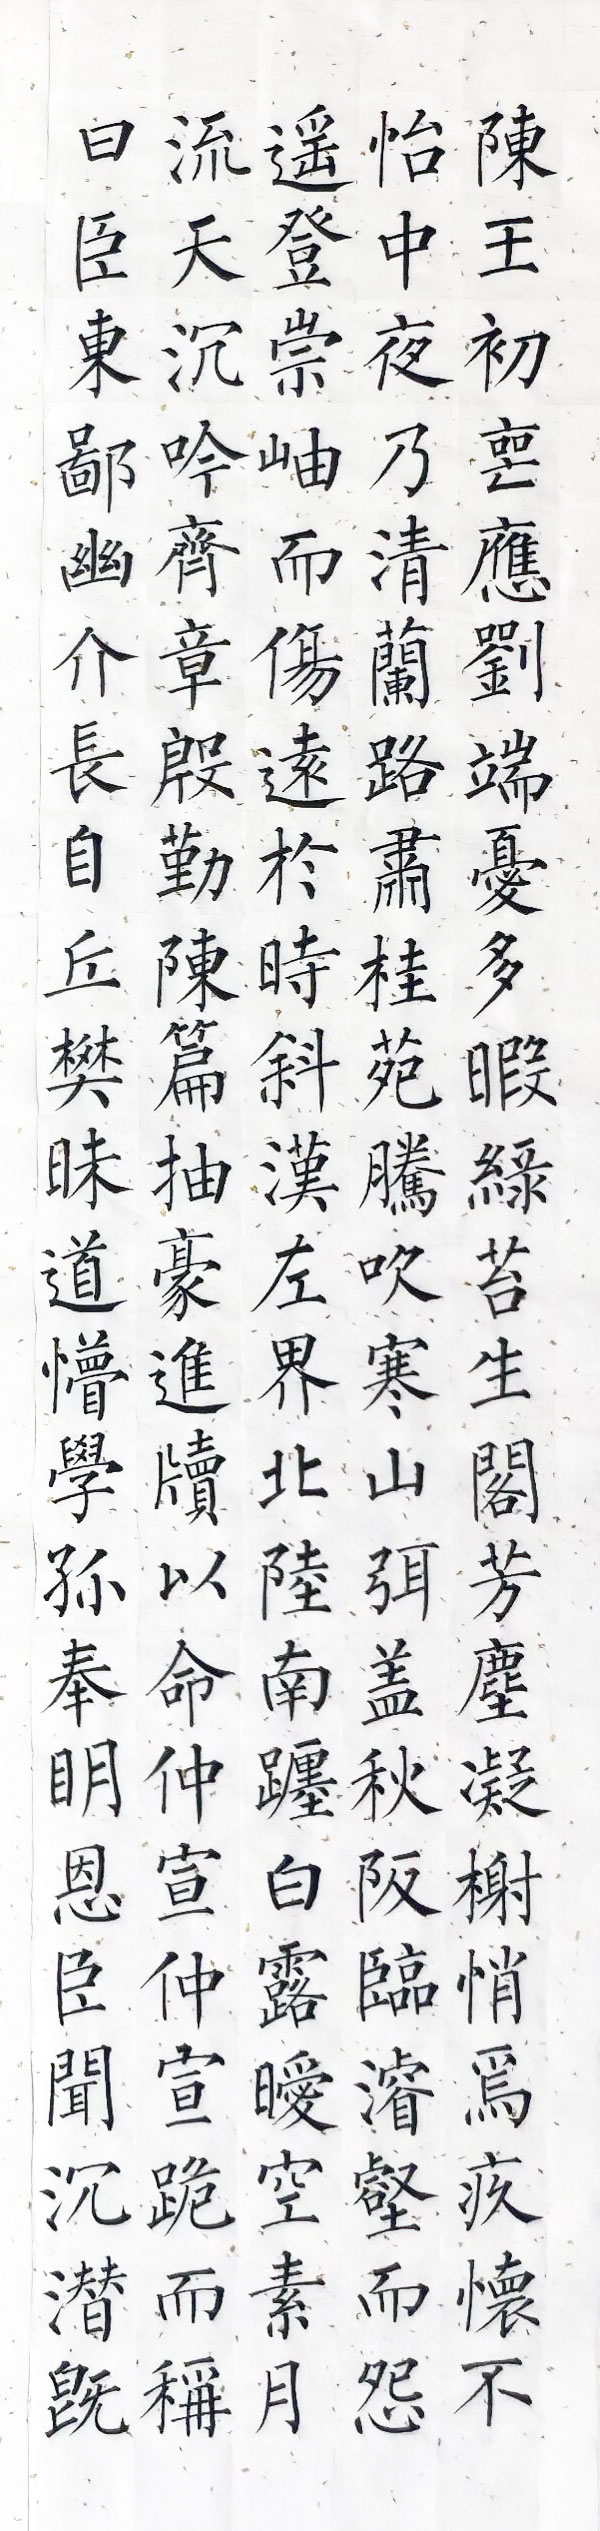 陳王初喪應劉端憂多暇綠苔生閣芳塵凝榭悄焉疚懷不
怡中夜乃清蘭路肅桂苑騰吹寒山弭盖秋阪臨濬壑而怨
遥登崇岫而傷遠於時斜漢左界北陸南躔白露曖空素月
流天沉吟齊章殷勤陳篇抽豪進牘以命仲宣仲宣跪而稱
曰臣東鄙幽介長自丘樊昧道懵學孤奉明恩臣聞沉潛既